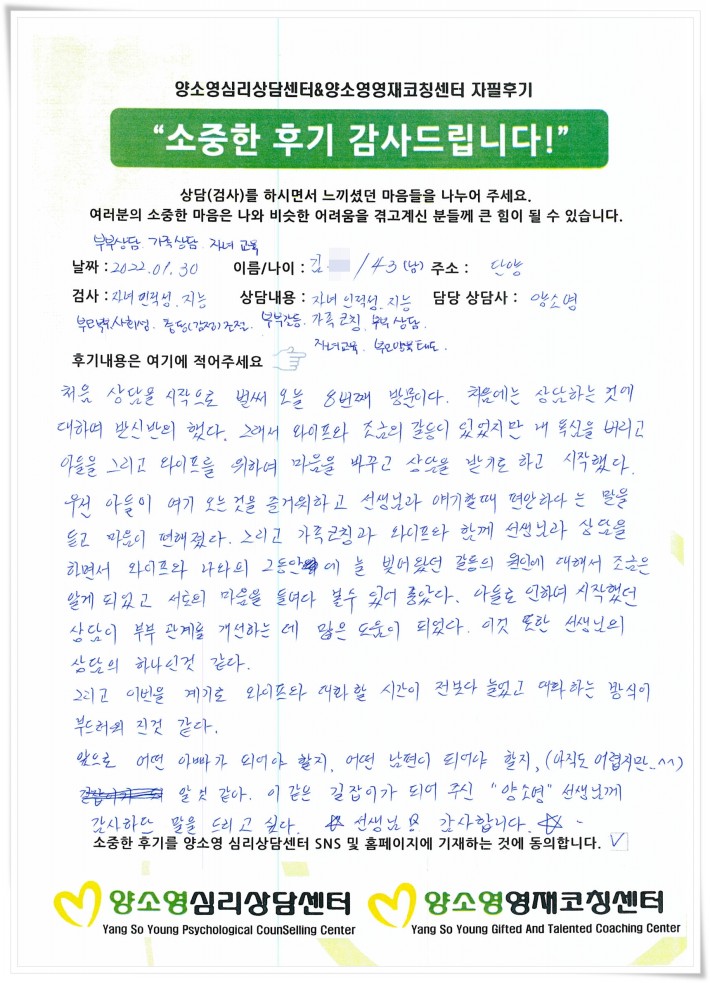 양소영심리상담센터&양소영영재코칭센터 자필후기
“소중한 후기 감사드립니다!”
상담(검사)를 하시면서 느끼셨던 마음들을 나누어 주세요.
여러분의 소중한 마음은 나와 비슷한 어려움을 겪고계신 분들께 큰 힘이 될 수 있습니다.
부부상담. 가족상담. 자녀교육
날짜 : 2022.01.30 이름/나이 : 김 /43(남) 주소 : 단양
검사 : 자녀 인적성. 지능 상담내용 : 자녀 인적성. 지능 담당 상담사 : 양소영
조절. 부부갈등. 가족코칭. 부부상담.
자녀교육. 부모양육태도.
후기내용은 여기에 적어주세요
처음 상담을 시작으로 벌써 오늘 8번째 방문이다. 처음에는 상담하는 것에
대하여 반신반의 했다. 그래서 와이프와 조금의 갈등이 있었지만 내 욕심을 버리고
아들을 그리고 와이프를 위하여 마음을 바꾸고 상담을 받기로 하고 시작했다.
우선 아들이 여기 오는것을 즐거워하고 선생님과 얘기할때 편안하다는 말을
듣고 마음이 편해졌다. 그리고 가족코칭과 와이프와 함께 선생님과 상담을
하면서 와이프와 나와의 그동안에 늘 빚어왔던 갈등의 원인에 대해서 조금은
알게 되었고 서로의 마음을 들여다 볼수 있어 좋았다. 아들로 인하여 시작했던
상담이 부부 관계를 개선하는 데 많은 도움이 되었다. 이것 또한 선생님의
상담의 하나인것 같다.
그리고 이번을 계기로 와이프와 대화할 시간이 전보다 늘었고 대화하는 방식이
부드러워 진것 같다.
앞으로 어떤 아빠가 되어야 할지, 어떤 남편이 되어야 할지, (아직도 어렵지만..^^)
알것 같아. 이 같은 길잡이가 되어 주신 "양소영" 선생님께
감사하단 말을 드리고 싶다. ☆ 선생님 감사합니다. ☆
소중한 후기를 양소영 심리상담센터 SNS 및 홈페이지에 기재하는 것에 동의합니다. ✓
양소영심리상담센터 양소영영재코칭센터
Yang So Young Psychological CounSelling Center Yang So Young Gifted And Talented Coaching Center